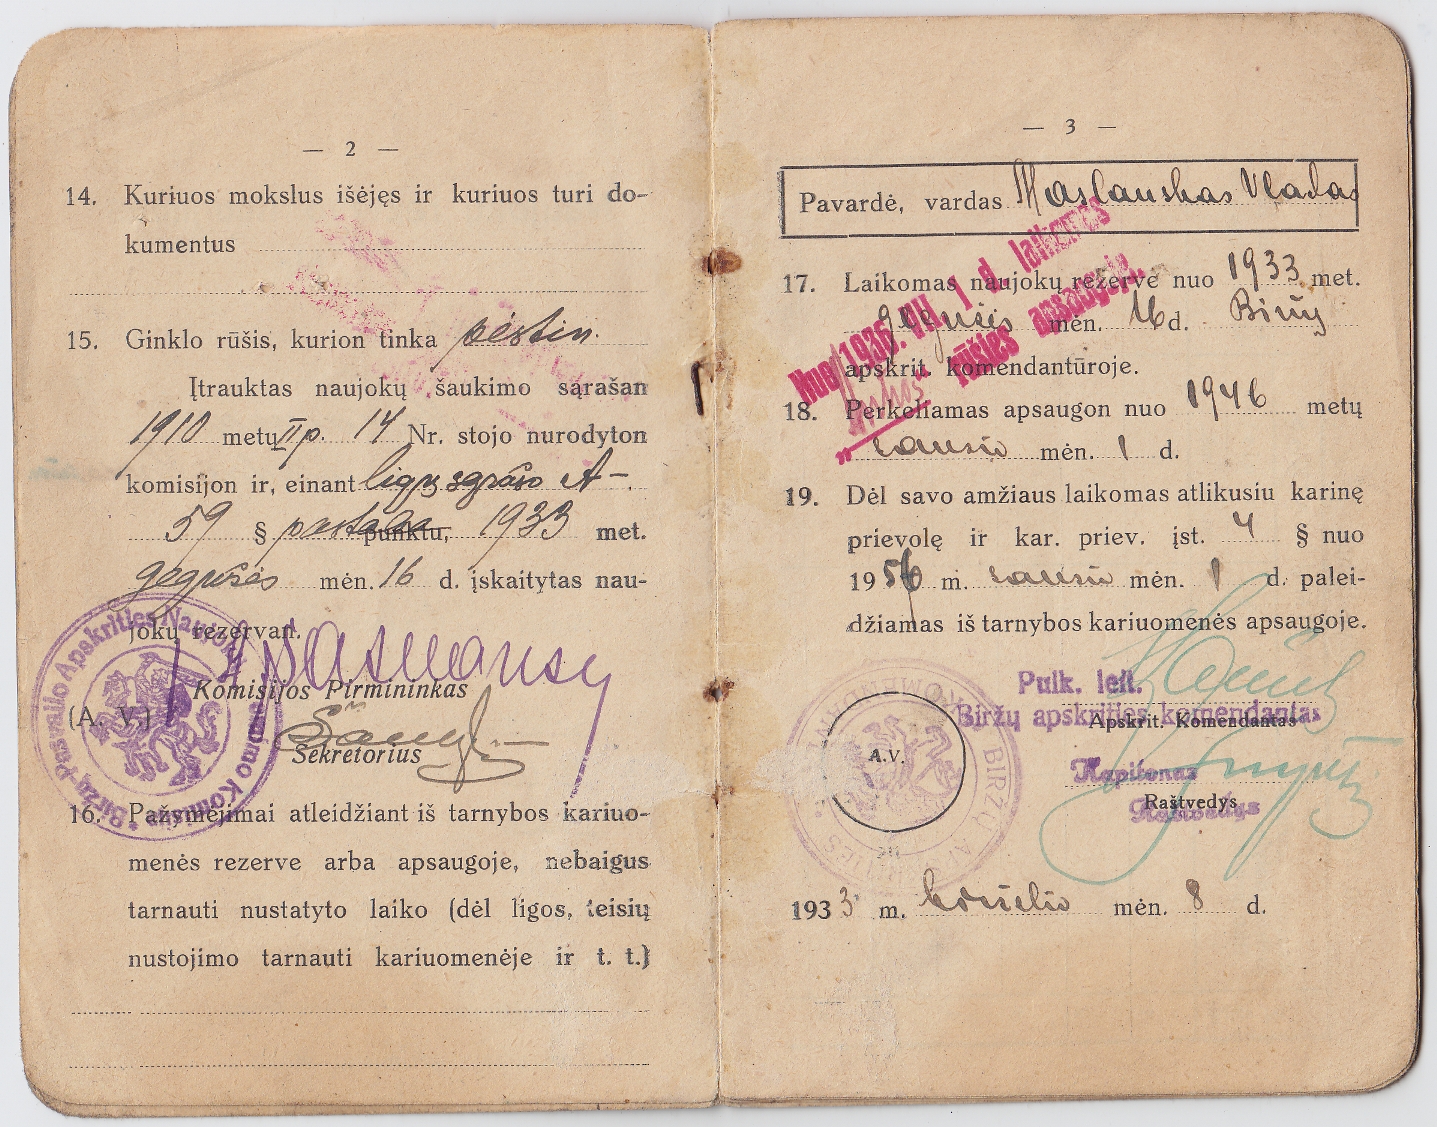 — 2 —
14. Kuriuos mokslus išėjęs ir kuriuos turi do-
kumentus
15. Ginklo rūšis, kurion tinka pėstin.
Įtrauktas naujokų šaukimo sąrašan
1910 metų II p. 14 Nr. stojo nurodyton
komisijon ir, einant ligų sąrašo A-
59 § pastaba punktu, 1933 met.
gegužės mėn. 16 d. įskaitytas nau-
jokų rezervan.
Komisijos Pirmininkas
(A. V.)
Sekretorius
Biržų-Pasvalio Apskrities Naujokų Ėmimo Komisija
16. Pažymėjimai atleidžiant iš tarnybos kariuo-
menės rezerve arba apsaugoje, nebaigus
tarnauti nustatyto laiko (dėl ligos, teisių
nustojimo tarnauti kariuomenėje ir t. t.)
— 3 —
Pavardė, vardas Maslauskas Vladas
17. Laikomas naujokų rezerve nuo 1933 met.
gegužės mėn. 16 d. Biržų
apskrit. komendantūroje.
Nuo 1936. VII. 1 d. laikomas
" rūšies apsaugoje.
18. Perkeliamas apsaugon nuo 1946 metų
sausio mėn. 1 d.
19. Dėl savo amžiaus laikomas atlikusiu karinę
prievolę ir kar. priev. įst. 4 § nuo
1956 m. sausio mėn. 1 d. palei-
džiamas iš tarnybos kariuomenės apsaugoje.
Pulk. leit.
Biržų apskrities komendantas
Apskrit. Komendantas
A.V.
Kapitonas
Raštvedys
Raštvedys
1933 m. birželio mėn. 8 d.